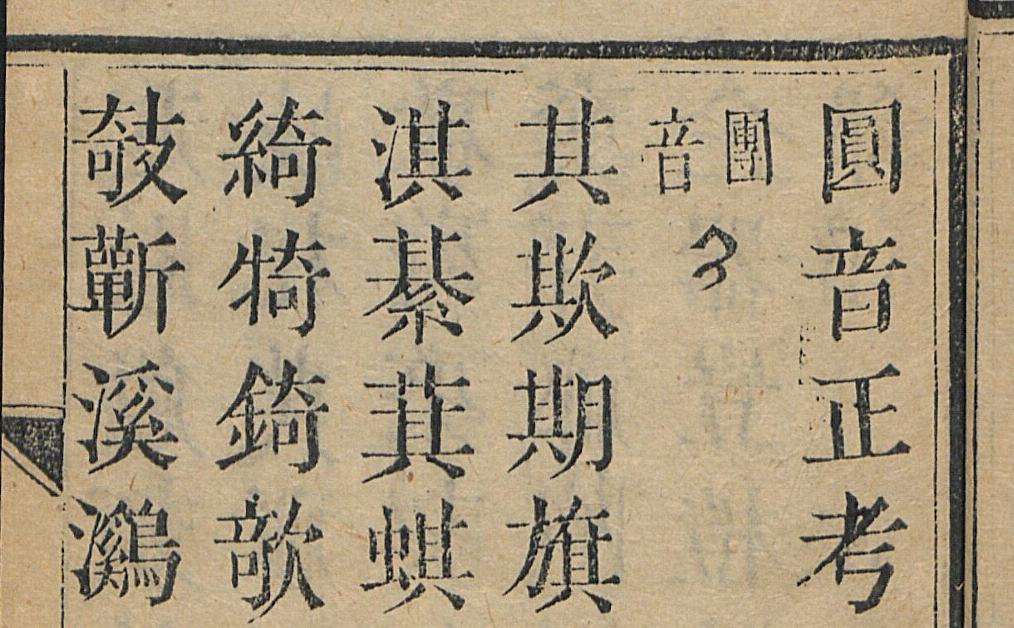 圓音正考
團音 ᡴᡳ
其欺期旗
淇綦萁蜞
綺犄錡欹
攲蘄溪鸂